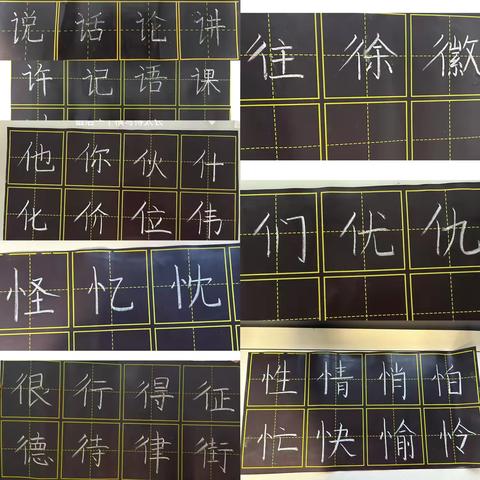 说话论讲
许记语课
他你伙什
化价位伟
怪忆忱
很行得征
德待律街
往徐徽
们优仇
性情悄怕
忙快愉怜